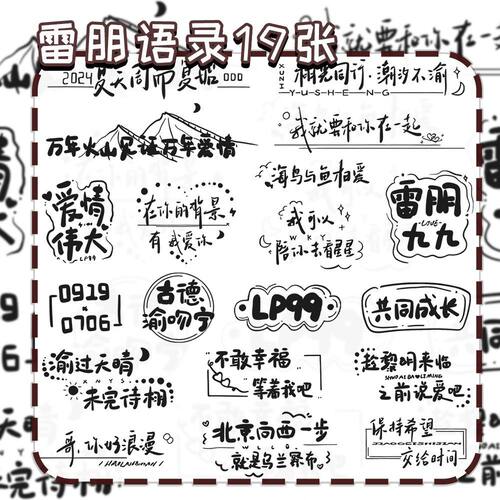 雷朋语录19张
2024夏天周而复始
XUNI
相克同行·潮汐不渝
YUSHENG
我就要和你在一起
万年火山见证万年爱情
海鸟与鱼相爱
爱情
伟大
LP99
在你的背景
有我爱你
我可以
WKY
陪你去看星星
雷朋
LOVE
九九
0919
0706
古德
渝吻宁
LP99
共同成长
渝过天晴
XNYS
未完待栩
不敢幸福
等着我吧
趁黎明来临
SHUOAIBALIMING
之前说爱吧
哥,你好浪漫
北京向西一步
就是乌兰察布
保持希望
交给时间